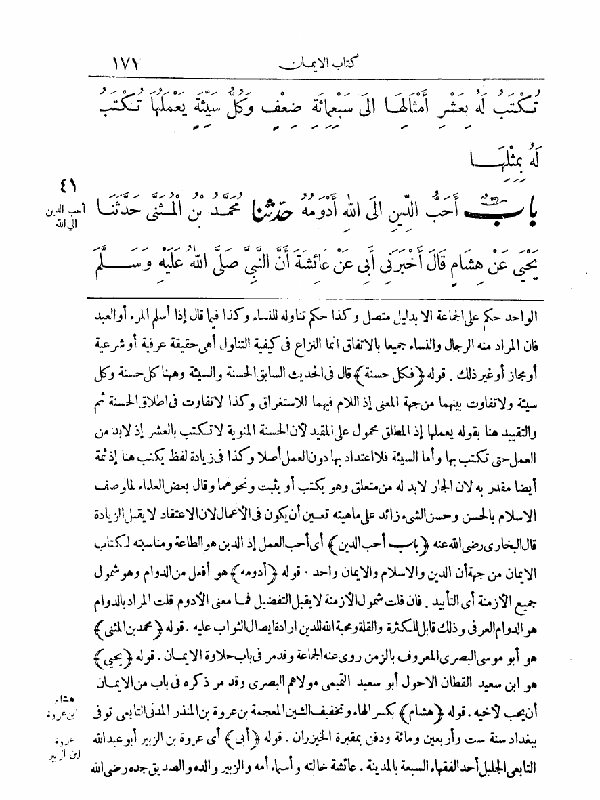 كتاب الايمان ١٧١
تُكْتَبُ لَهُ بِعَشْرِ أَمْثَالِهَا الى سَبْعِمِائَةِ ضِعْفٍ وَكُلُّ سَيِّئَةٍ يَعْمَلُهَا تُكْتَبُ
لَهُ بِمِثْلِهَا
٤١
باب أَحَبُّ الدِّينِ الى اللهِ أَدْوَمُهُ حَدَّثَنَا مُحَمَّدُ بْنُ الْمُثَنَّى حَدَّثَنَا
أحب الدين
الى الله
يَحْيَى عَنْ هِشَامٍ قَالَ أَخْبَرَنِى أَبِى عَنْ عَائِشَةَ أَنَّ النَّبِيَّ صَلَّى اللهُ عَلَيْهِ وَسَلَّمَ
الواحد حكم على الجماعة الا بدليل متصل وكذا حكم تناوله للنساء وكذا فيما قال إذا أسلم المرء أو العبد
فان المراد منه الرجال والنساء جميعا بالاتفاق انما النزاع فى كيفية التناول أهى حقيقة عرفية أو شرعية
أو مجاز أو غير ذلك . قوله ﴿فكل حسنة﴾ قال فى الحديث السابق الحسنة والسيئة وههنا كل حسنة وكل
سيئة ولا تفاوت بينهما من جهة المعنى إذ اللام فيهما للاستغراق وكذا لا تفاوت فى اطلاق الحسنة ثم
والتقييد هنا بقوله يعملها إذ المطلق محمول على المقيد لأن الحسنة المنوية لا تكتب بالعشر إذ لابد من
العمل حتى تكتب بها وأما السيئة فلا اعتداد بها دون العمل أصلا وكذا فى زيادة لفظ يكتب هنا إذ ثمة
أيضا مقدر به لان الجار لابد له من متعلق وهو يكتب أو يثبت ونحوهما وقال بعض العلماء لما وصف
الاسلام بالحسن وحسن الشىء زائد على ماهيته تعين أن يكون فى الاعمال لان الاعتقاد لا يقبل الزيادة
قال البخارى رضى الله عنه ﴿باب أحب الدين﴾ أى أحب العمل إذ الدين هو الطاعة ومناسبته لكتاب
الايمان من جهة أن الدين والاسلام والايمان واحد . قوله ﴿أدومه﴾ هو أفعل من الدوام وهو شمول
جميع الأزمنة أى التأبيد . فان قلت شمول الأزمنة لا يقبل التفضيل فما معنى الأدوم قلت المراد بالدوام
هو الدوام العرفى وذلك قابل للكثرة والقلة ومحبة الله للدين ارادة ايصال الثواب عليه . قوله ﴿محمد بن المثنى﴾
هو أبو موسى البصرى المعروف بالزمن روى عنه الجماعة وقد مر فى باب حلاوة الايمان . قوله ﴿يحيى﴾
هو ابن سعيد القطان الاحول أبو سعيد التميمى مولاهم البصرى وقد مر ذكره فى باب من الايمان
أن يحب لأخيه . قوله ﴿هشام﴾ بكسر الهاء وتخفيف الشين المعجمة بن عروة بن المنذر المدنى التابعى توفى
هشام
ابن عروة
ببغداد سنة ست وأربعين ومائة ودفن بمقبرة الخيزران . قوله ﴿أبى﴾ أى عروة بن الزبير أبو عبد الله
عروة
ابن الزبير
التابعى الجليل أحد الفقهاء السبعة بالمدينة . عائشة خالته وأسماء أمه والزبير والده والصديق جده رضى الله